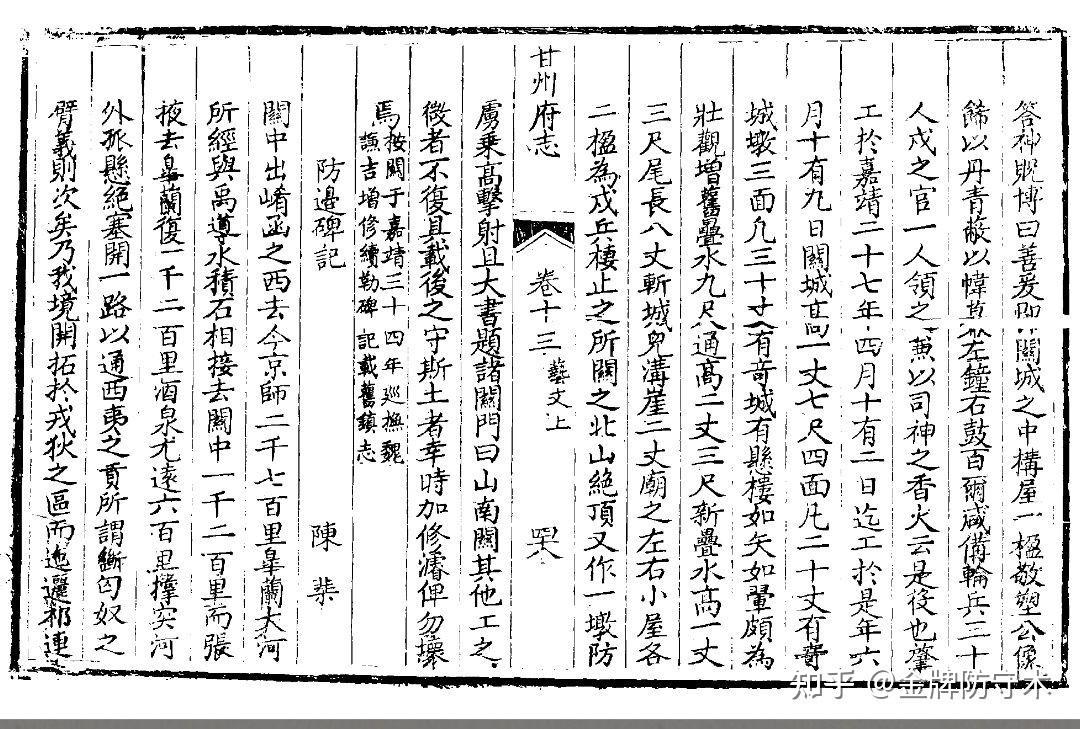 答神貺博曰善爰即關城之中構屋一楹敬塑公像
飾以丹青蔽以幃幕左鐘右鼓百爾咸備輪兵三十
人戍之官一人領之兼以司神之香火云是役也肇
工於嘉靖二十七年四月十有二日迄工於是年六
月十有九日關城高一丈七尺四面凡二十丈有奇
城墩三面凡三十丈有奇城有懸樓如矢如翬頗為
壯觀增舊疊水九尺通高二丈三尺新疊水高一丈
三尺尾長八丈斬城兒溝崖二丈廟之左右小屋各
二楹為戍兵棲止之所關之北山絕頂又作一墩防
甘州府志 卷十三 藝文上
虜乘高擊射且大書題諸關門曰山南關其他工之
微者不復具載後之守斯土者幸時加修濬俾勿壞
焉按關于嘉靖三十四年巡撫魏
謙吉增修續勒碑記載舊鎮志
防邊碑記 陳棐
關中出崤函之西去今京師二千七百里臯蘭大河
所經與禹導水積石相接去關中一千二百里而張
掖去臯蘭復一千二百里酒泉尤遠六百里撐突河
外孤懸絕塞開一路以通西夷之貢所謂斷匈奴之
臂義則次矣乃我境開拓於戎狄之區而迤邐祁連
知乎 @金牌防守术